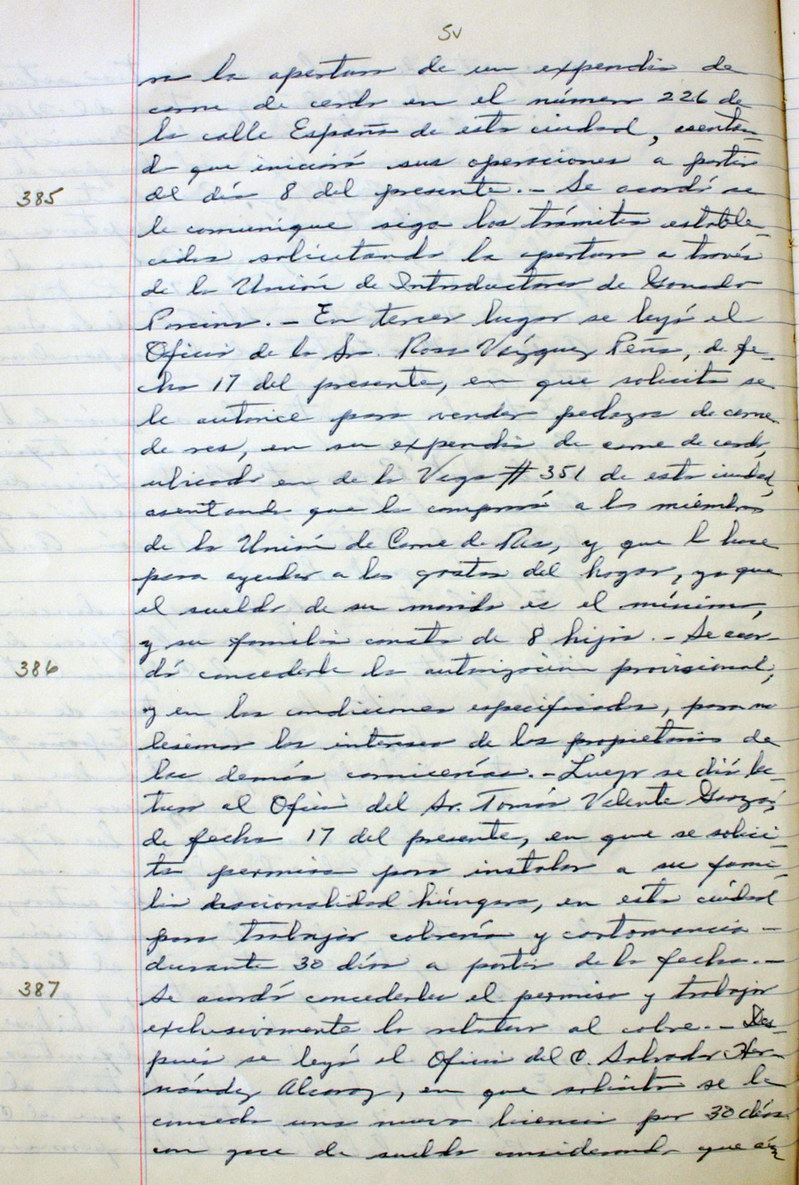 5v
ra la apertura de un expendio de
carne de cerdo en el número 226 de
la calle España de esta ciudad, asentan
do que iniciará sus operaciones a partir
385
del día 8 del presente. - Se acordó se
le comunique siga los trámites estable-
cidos solicitando la apertura a través
de la Unión de Introductores de Ganado
Porcino. - En tercer lugar se leyó el
Oficio de la Sra. Rosa Vázquez Peña, de fe-
cha 17 del presente, en que solicita se
le autorice para vender pedazos de carne
de res, en su expendio de carne de cerdo,
ubicado en de la Vega # 351 de esta ciudad,
asentando que la comprará a los miembros
de la Unión de Carne de Res, y que lo hace
para ayudar a los gastos del hogar, ya que
el sueldo de su marido es el mínimo,
y su familia consta de 8 hijos. - Se acor-
386
dó concederle la autorización provisional,
y en las condiciones especificadas, para no
lesionar los intereses de los propietarios de
las demás carnicerías. - Luego se dió lec-
tura al Oficio del Sr. Tomás Valente Garza,
de fecha 17 del presente, en que se solici-
ta permiso para instalar a su fami-
lia de nacionalidad húngara, en esta ciudad
para trabajar cobrería y cartomancia -
durante 30 días a partir de la fecha. -
387
Se acordó concederles el permiso y trabajar
exclusivamente lo relativo al cobre. - Des-
pués se leyó el Oficio del C. Salvador Her-
nández Alcaraz, en que solicita se le
conceda una nueva licencia por 30 días
con goce de sueldo considerando que aún